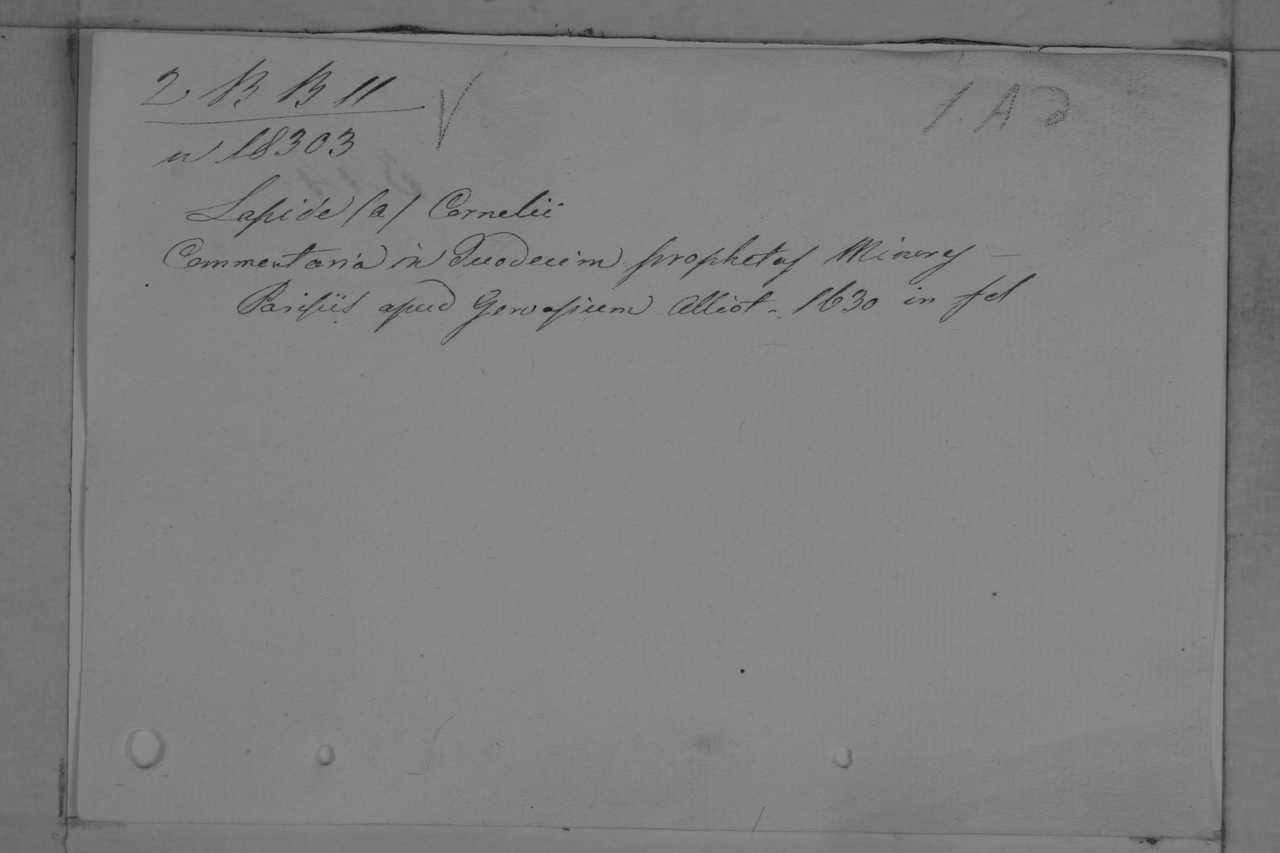 2 B B 11
n 18303
1. A d
Lapide (a) Cornelii
Commentaria in Duodecim prophetas Minores
Parisiis apud Gervasium Alliot - 1630 in fol